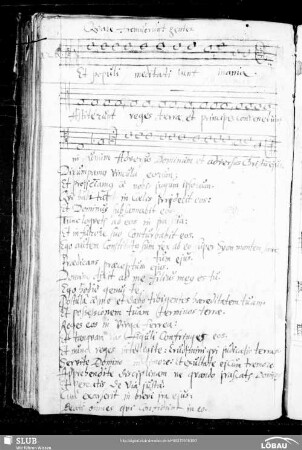 Quare fremuerunt gentes
Et populi meditati sunt inania
Astiterunt reges terre et principes convenerunt
in unum Adversus Dominum et adversus Christum eius
Dirumpamus vincula eorum
Et proiiciamus a nobis iugum ipsorum
Qui habitat in celis irridebit eos
Et Dominus subsannabit eos
Tunc loquetur ad eos in ira sua
Et in furore suo Conturbabit eos
Ego autem Constitutus sum rex ab eo super Syon montem
Predicans preceptum eius
Dominus dixit ad me filius meus es tu
Ego hodie genui te
Postula a me et dabo tibi gentes hereditatem tuam
Et possessionem tuam terminos terre
Reges eos in virga ferrea
Et tanquam vas figuli Confringes eos
Et nunc reges intelligite Erudimini qui iudicatis terram
Servite Domino in timore Et exultate ei cum tremore
Apprehendite disciplinam ne quando irascatur Dominus
Et pereatis De via iusta
Cum exarserit in brevi ira eius
Beati omnes qui confidunt in eo
SLUB
Wir führen Wissen.
LÖBAU